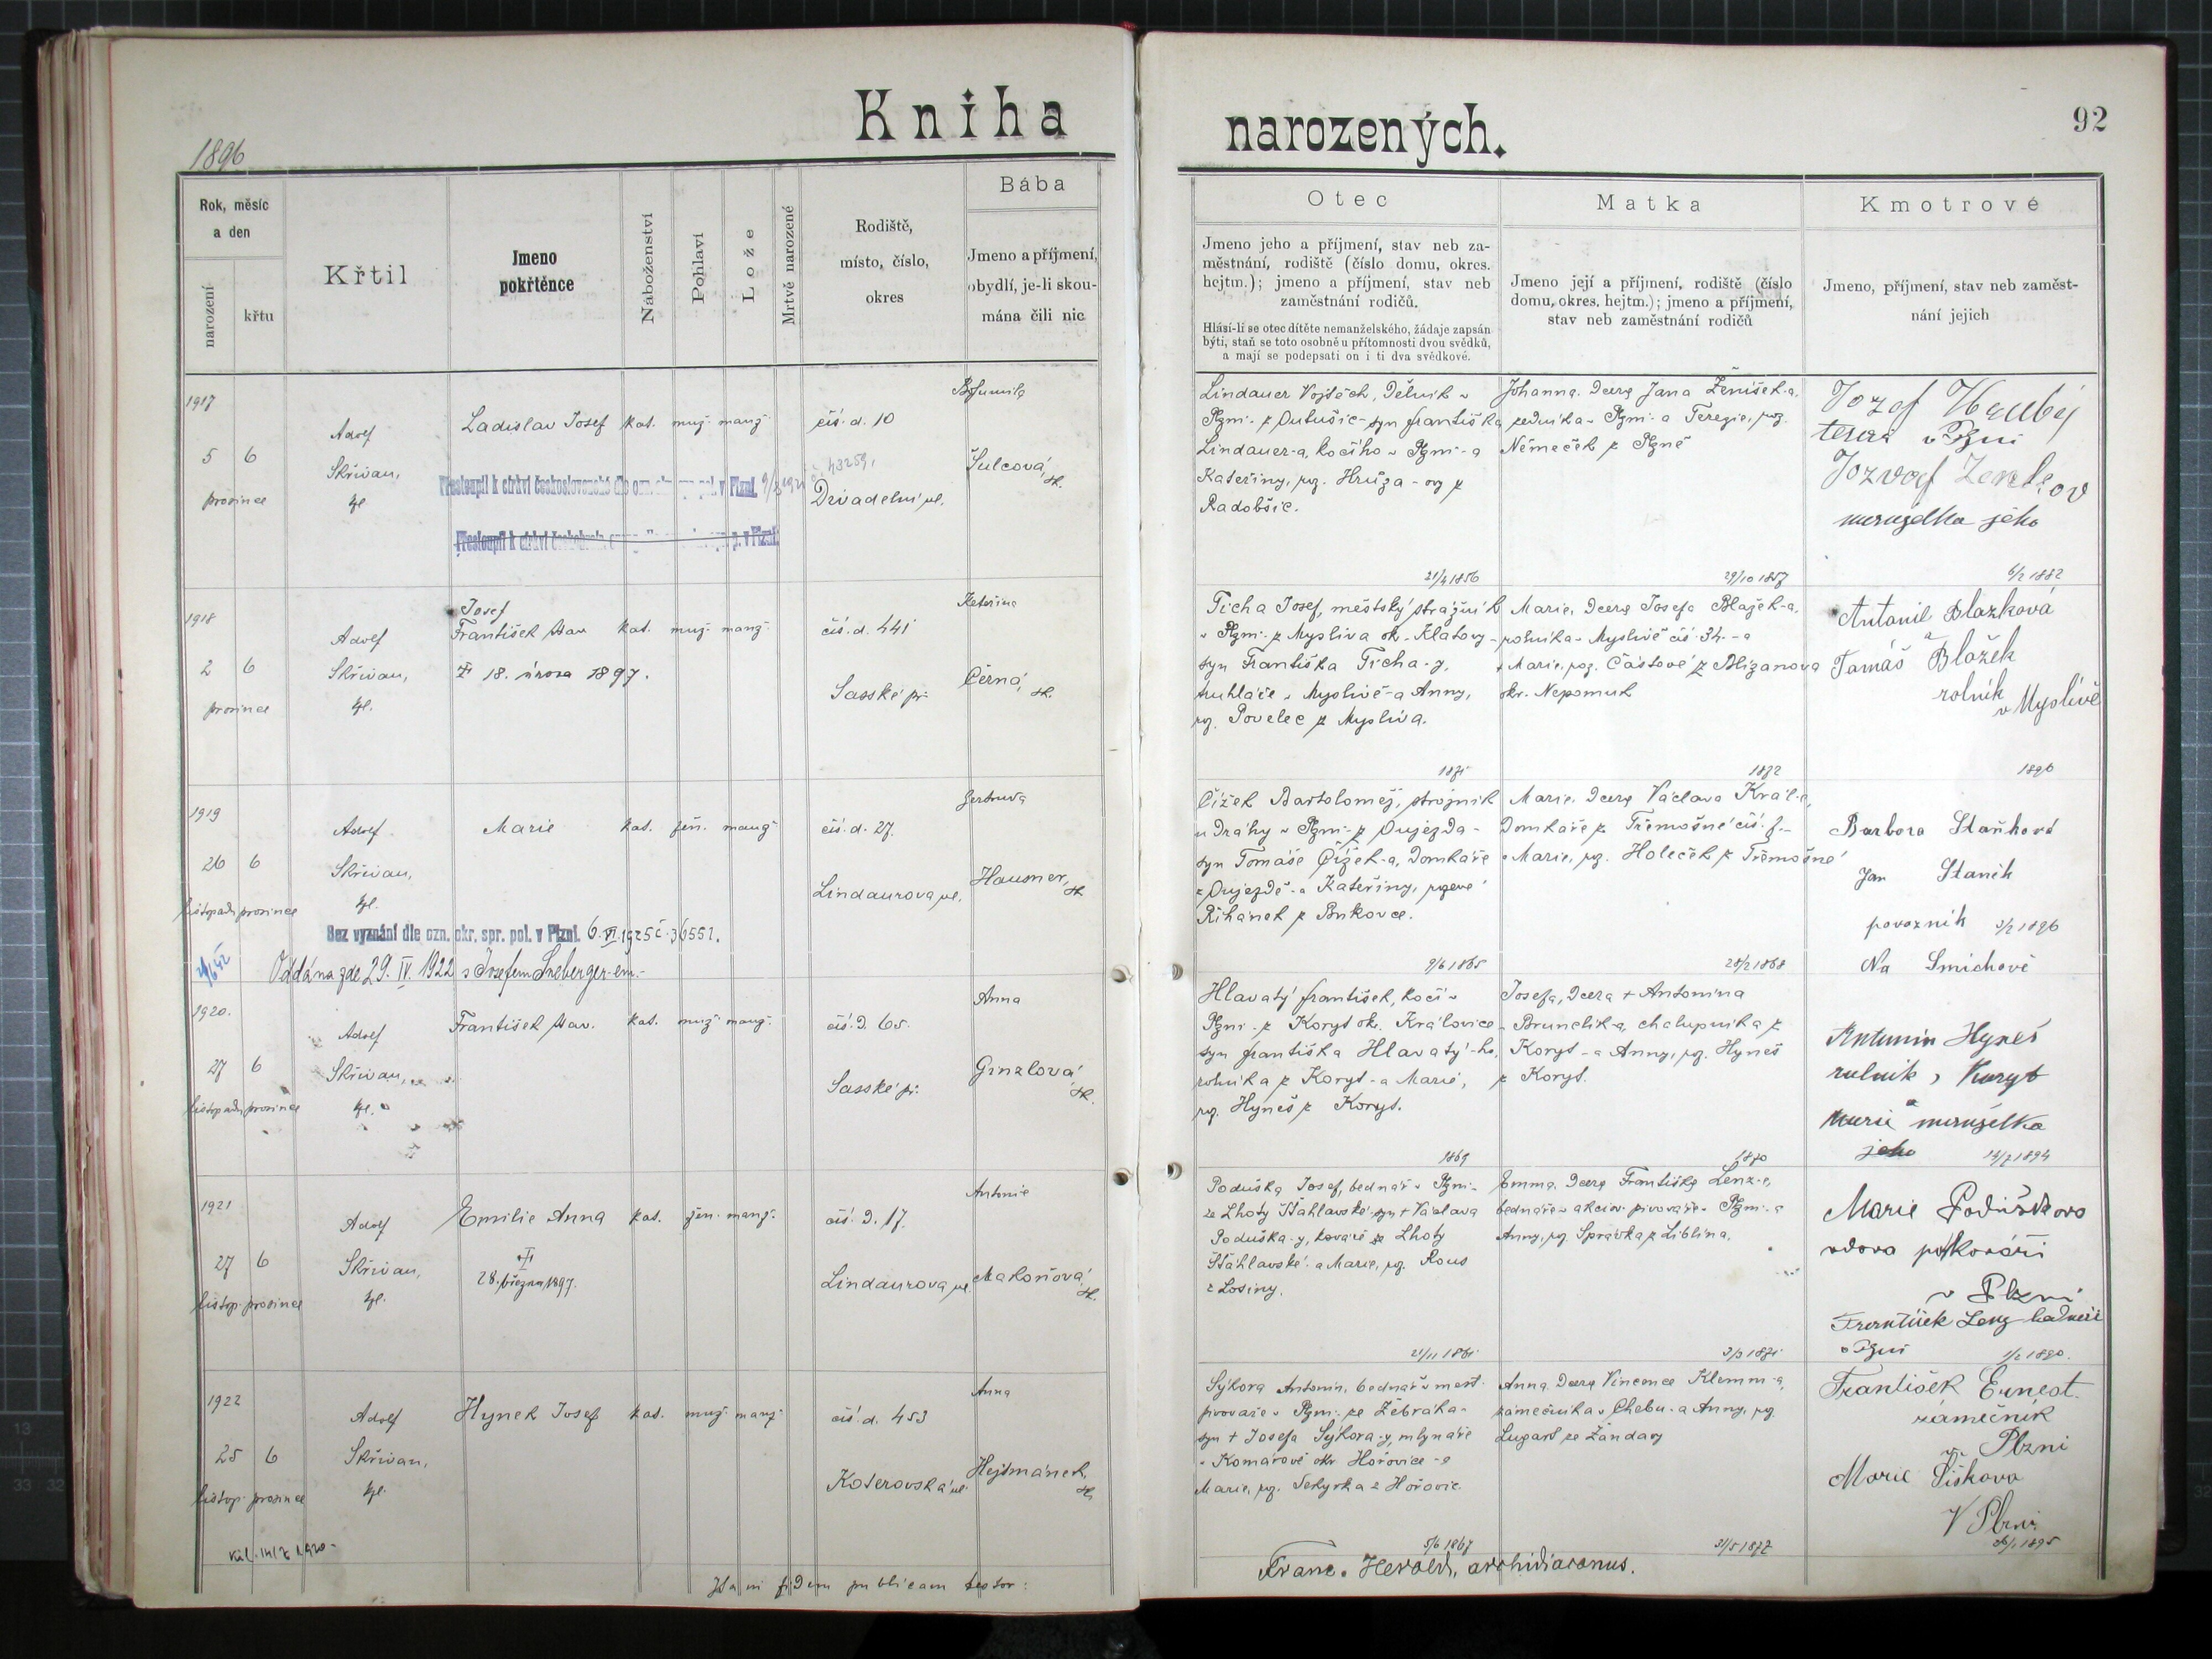 Kniha
narozených.
92
1896
Rok, měsíc
a den
narození
křtu
Křtil
Jmeno
pokřtěnce
Náboženství
Pohlaví
Lože
Mrtvě narozené
Rodiště,
místo, číslo,
okres
Bába
Jmeno a příjmení,
obydlí, je-li skou-
mána čili nic
Otec
Jmeno jeho a příjmení, stav neb za-
městnání, rodiště (číslo domu, okres.
hejtm.); jmeno a příjmení, stav neb
zaměstnání rodičů.
Hlásí-li se otec dítěte nemanželského, žádaje zapsán
býti, staň se toto osobně u přítomnosti dvou svědků,
a mají se podepsati on i ti dva svědkové.
Matka
Jmeno její a příjmení, rodiště (číslo
domu, okres. hejtm.); jmeno a příjmení,
stav neb zaměstnání rodičů
Kmotrové
Jmeno, příjmení, stav neb zaměst-
nání jejich
1917
5 6
prosince
Adolf
Skřivan,
kpl.
Ladislav Josef
kat. muž. manž.
čís. d. 10
Divadelní ul.
Bohumila
Šulcová, zk.
Přestoupil k církvi československé dle ozn. pol. v Plzni.
43259.
Přestoupil k církvi v Plzni.
Lindauer Vojtěch, dělník v
Plzni z Dutušic syn Františka
Lindauer-a, kočího v Plzni a
Kateřiny, roz. Hrůza-ovy z
Radobšic.
21/4 1856
Johanna, dcera Jana Ženíšek-a,
zedníka v Plzni a Terezie, roz.
Němeček z Plzně
29/10 1857
Jozef Hrubý
tesař v Plzni
manželka jeho
6/2 1882
1918
2 6
prosince
Adolf
Skřivan,
kpl.
Josef
František Xav.
kat. muž. manž.
18. února 1897.
čís. d. 441
Sasské př.
Kateřina
Černá, zk.
Ticha Josef, městský strážník
v Plzni z Mysliva ok. Klatovy
syn Františka Ticha-y,
truhláře v Myslivě a Anny,
roz. Povelec z Mysliva.
1871
Marie, dcera Josefa Blažek-a,
rolníka v Myslivě čís. 34. a
Marie, roz. Částové z Blizanova
okr. Nepomuk
1872
Antonie Blažková
a
Tomáš Blažek
rolník
v Myslívě
1896
1919
26 6
listopadu prosince
Adolf
Skřivan,
kpl.
Marie
kat. žen. manž.
čís. d. 27.
Lindaurova ul.
Gertruda
Hausner, zk.
Bez vyznání dle ozn. okr. spr. pol. v Plzni. 6. VI. 1925 č. 36551.
Oddána zde 29. IV. 1922 s Josefem Sneberger-em.
Čížek Bartoloměj, strojník
u dráhy v Plzni z Oujezda
syn Tomáše Čížek-a, domkáře
z Oujezdě a Kateřiny, rozené
Řihánek z Bukovce.
9/6 1865
Marie, dcera Václava Král-e,
domkáře z Třemošné čís. 7.
a Marie, roz. Holeček z Třemošné
28/2 1868
Barbora Staňková
Jan Staněk
povozník 3/2 1896
Na Smíchově
1920.
27 6
listopadu prosince
Adolf
Skřivan,
kpl.
František Xav.
kat. muž. manž.
čís. d. 65.
Sasské př.
Anna
Ginzlová zk.
Hlavatý František, kočí v
Plzni z Koryt ok. Kralovice
syn Františka Hlavatý-ho,
rolníka z Koryt a Marie,
roz. Hyneš z Koryt.
1869
Josefa, dcera + Antonína
Brunclík-a, chalupníka z
Koryt a Anny, roz. Hyneš
z Koryt.
1870
Antonín Hyneš
rolník, Koryt
a
Marie manželka
jeho 14/7 1894
1921
27 6
listop. prosince
Adolf
Skřivan,
kpl.
Emilie Anna
kat. žen. manž.
28. března 1897.
čís. d. 17.
Lindaurova ul.
Antonie
Makoňová, zk.
Poduška Josef, bednář v Plzni
ze Lhoty Šťáhlavské syn + Václava
Poduška-y, kováře ze Lhoty
Šťáhlavské a Marie, roz. Rous
z Losiny.
21/11 1861
Emma, dcera Františka Lenz-e,
bednáře v akciov. pivováře v Plzni a
Anny, roz. Správka z Liblína.
3/3 1871
Marie Podušková
vdova po kováři
v Plzni
František Lenz bednář
v Plzni 1/2 1890.
1922
25 6
listop. prosince
Adolf
Skřivan,
kpl.
Hynek Josef
kat. muž. manž.
čís. d. 453
Koterovská ul.
Anna
Hejtmánek, zk.
Sýkora Antonín, bednář v měst.
pivováře v Plzni ze Žebráka
syn + Josefa Sýkora-y, mlynáře
v Komárově okr. Hořovice a
Marie, roz. Sekyrka z Hořovic
5/6 1867
Anna, dcera Vincence Klemm-a,
zámečníka v Chebu a Anny, roz.
Lugart ze Žandavy
31/5 1872
František Ernest
zámečník
Plzni
Marie Šišková
V Plzni
Ita in fidem publicam testor:
Franc. Herold, archidiaconus.